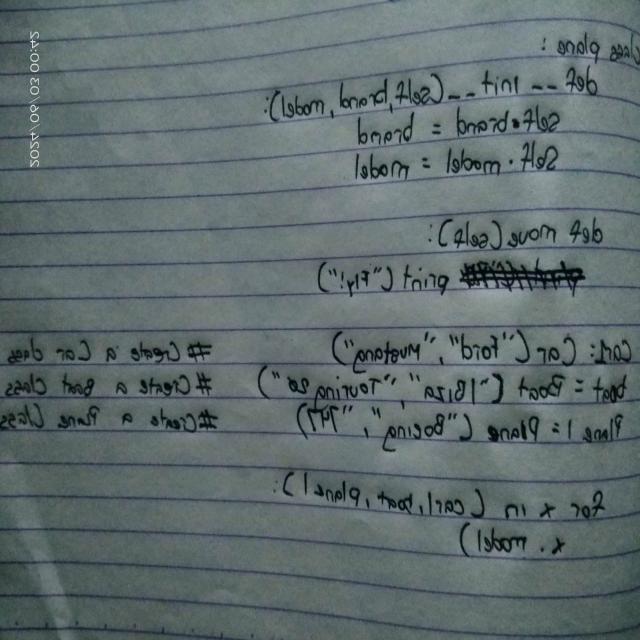 Class plane :
def __init__(self, brand, model):
self.brand = brand
self.model = model
def move(self):
print("Fly!")
Car1: Car("Ford", "Mustang") # Create a Car class
= Boat ("Ibiza", "Touring 20") # Create a Boat Class
Plane 1 = Plane ("Boeing", "747") # Create a Plane Class
for x in (car1, boat, plane1):
x. model)
2024/09/03 00:42